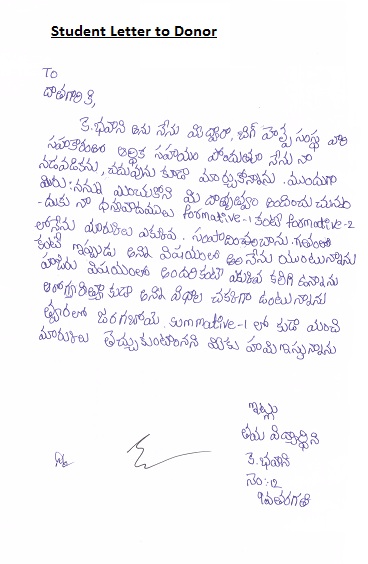 Student Letter to Donor
To
దాతగారికి,
కె.భవాని అను నేను మీ ద్వారా, బిగ్ హెల్ప్ సంస్థ వారి
సహకారంతో ఆర్థిక సహాయం పొందుతూ నేను నా
నడవడికను, చదువును కూడా మార్చుకొన్నాను. ముందుగా
మీరు నన్ను ఎంచుకొని మీ దాతృత్వం అందించు చున్నం
-దుకు నా ధన్యవాదములు formative-1 కంటే formative-2
లో నేను మార్కులు ఎక్కువ సంపాదించినాను. గతంలో
కంటే ఇప్పుడు అన్ని విషయంలో నేను యుంటున్నాను
విషయంలో అందరికంటే ఎక్కువ కలిగి ఉన్నాను
కూడా అన్ని విధాల చక్కగా ఉంటున్నాను
త్వరలో జరగబోయే summative-1 లో కూడా మంచి
మార్కులు తెచ్చుకుంటానని మీకు హామి ఇస్తున్నాను
ఇట్లు
తమ విద్యార్థిని
కె.భవాని
నెం:12
తరగతి